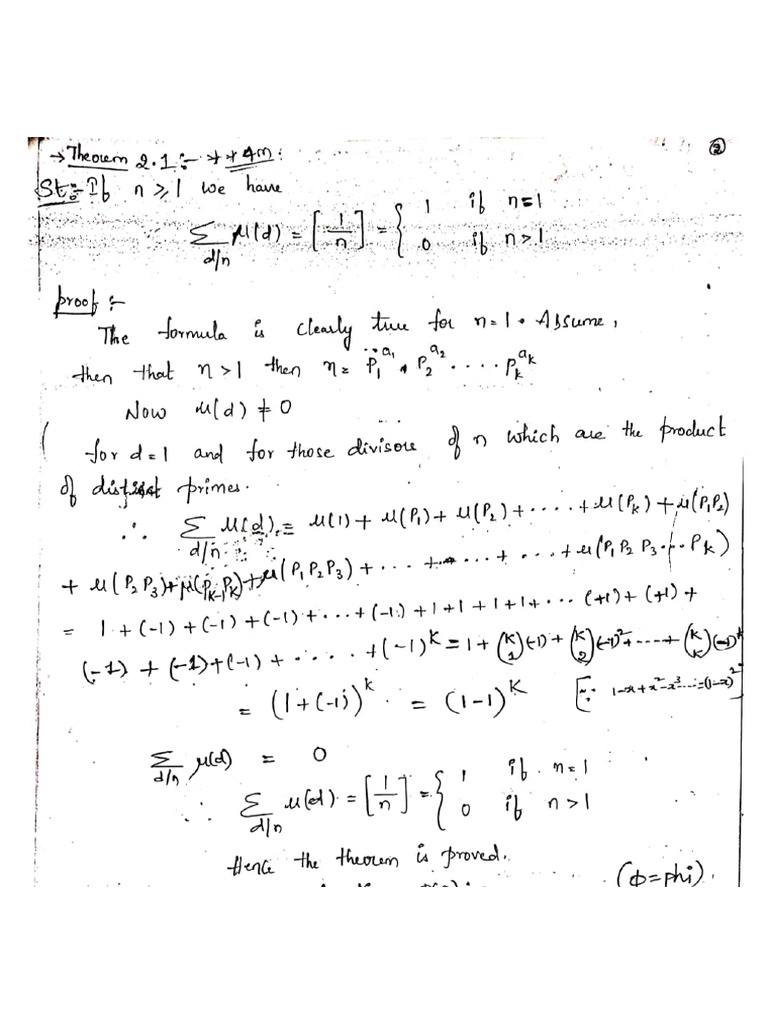 ②
→ Theorem 2.1 :- ** 4m :
St:- If n ≥ 1 we have
∑_{d/n} μ(d) = [1/n] = { 1 if n=1
0 if n>1
proof :-
The formula is clearly true for n=1. Assume,
then that n>1 then n = P₁^{a₁} . P₂^{a₂} ..... P_k^{a_k}
Now μ(d) ≠ 0
for d=1 and for those divisors of n which are the product
of distinct primes.
∴ ∑_{d/n} μ(d) = μ(1) + μ(P₁) + μ(P₂) + ..... + μ(P_k) + μ(P₁P₂)
+ μ(P₂P₃) + μ(P_{k-1}P_k) + μ(P₁P₂P₃) + ... + ... + ... + μ(P₁P₂P₃...P_k)
= 1 + (-1) + (-1) + (-1) + ... + (-1) + 1 + 1 + 1 + 1 + ... (+1) + (+1) +
(-1) + (-1) + (-1) + ..... + (-1)^k = 1 + (k 1)(-1) + (k 2)(-1)² + ..... + (k k)(-1)^k
= (1 + (-1))^k = (1-1)^k [∵ 1-x+x²-x³....=(1-x)²
∑_{d/n} μ(d) = 0
∴ ∑_{d/n} μ(d) = [1/n] = { 1 if n=1
0 if n>1
Hence the theorem is proved.
(Φ=phi).